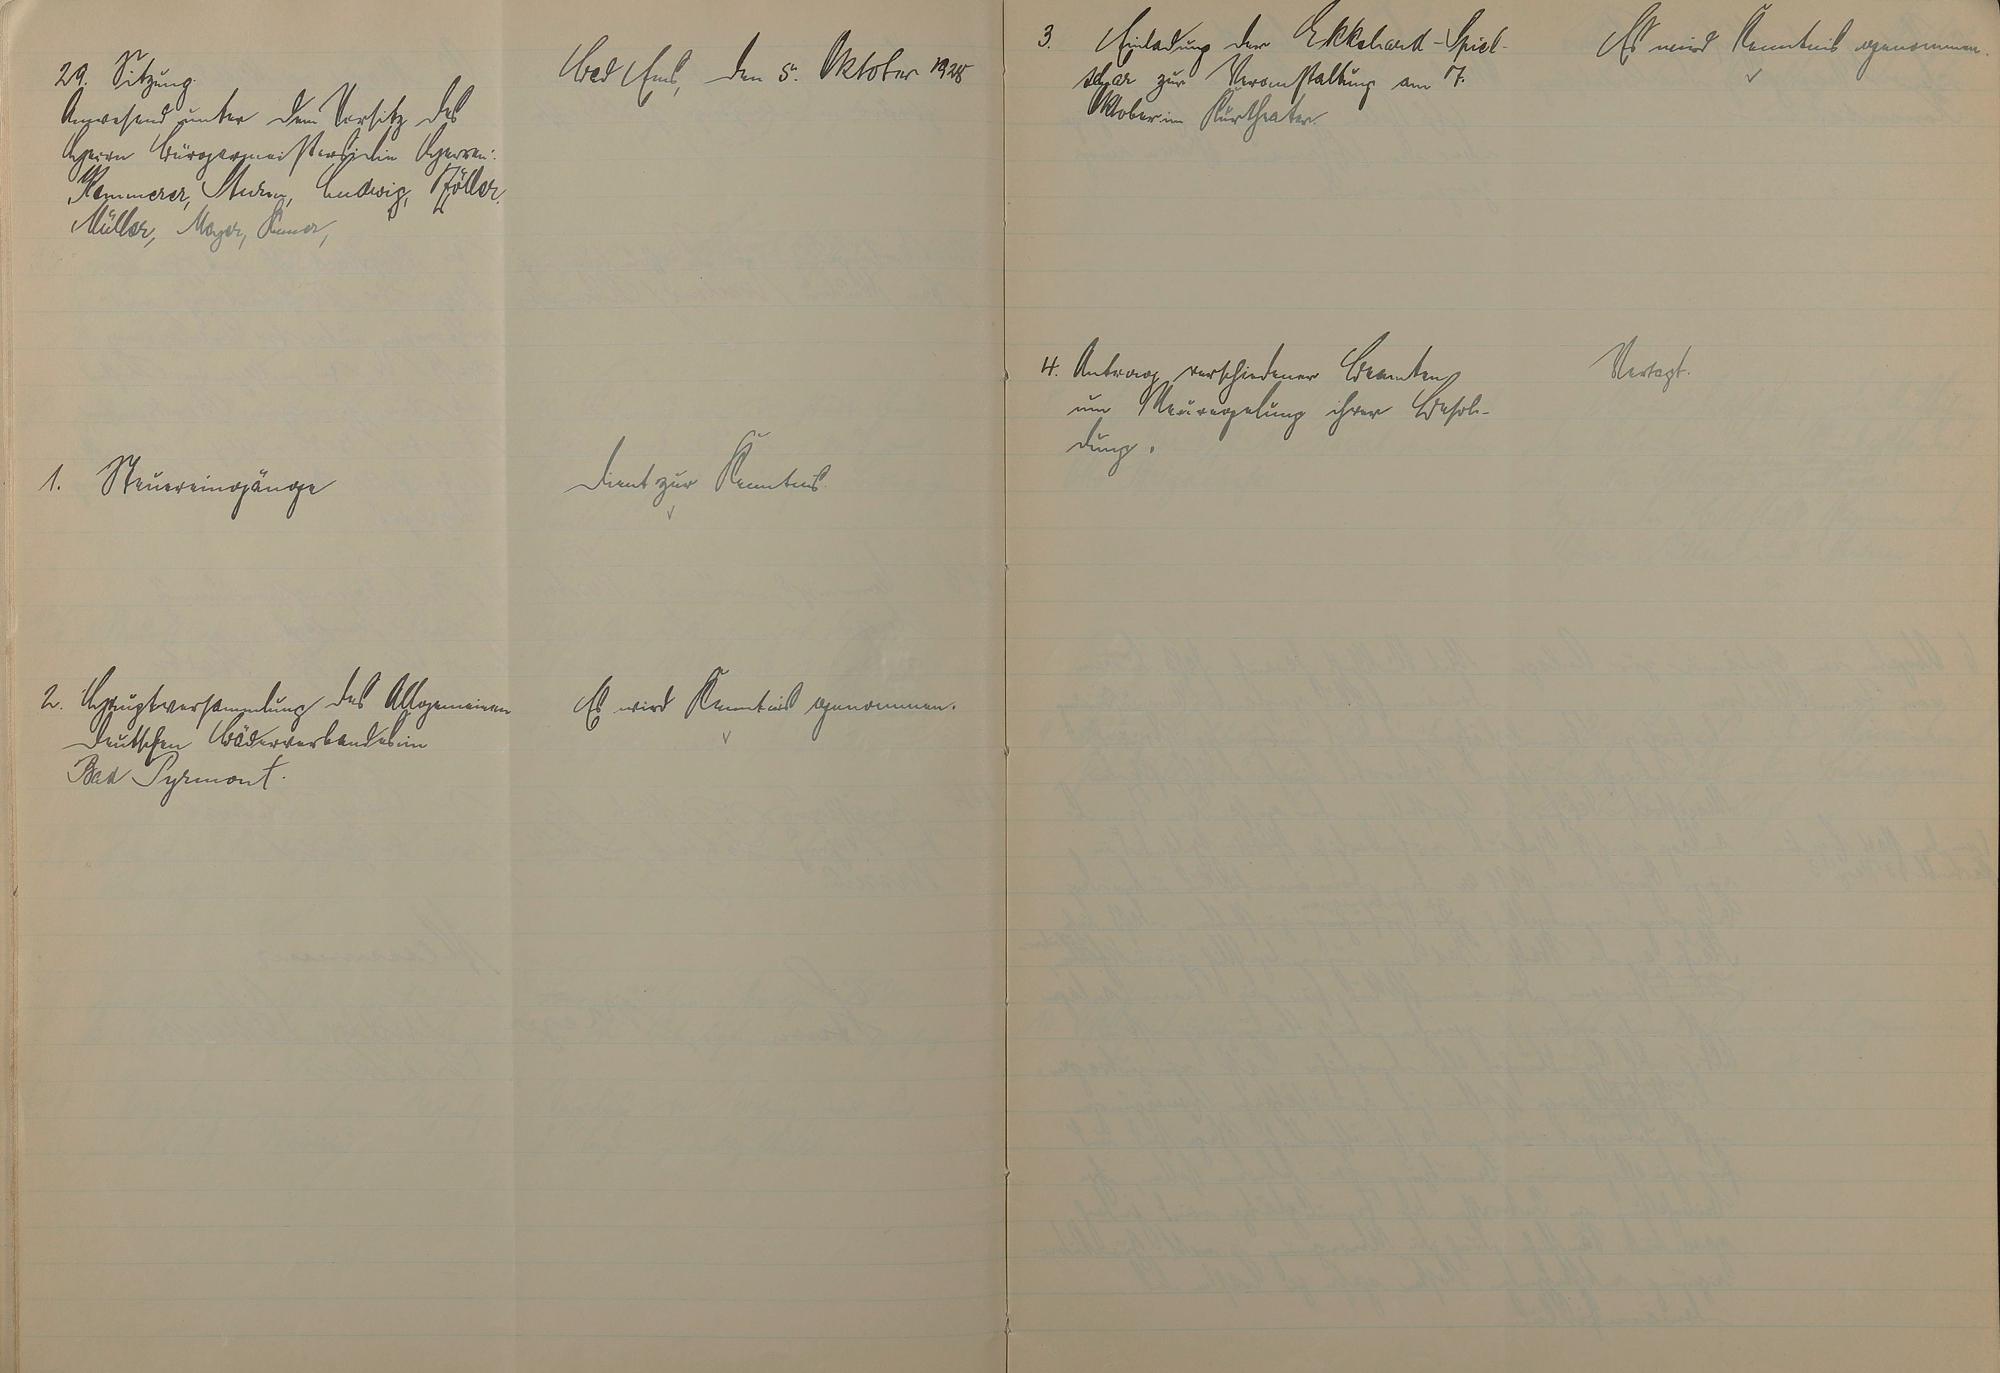 29. Sitzung.
Bad Ems, den 5. Oktober 1928
Anwesend unter dem Vorsitz des
Herrn Bürgermeisters die Herren:
Kemmerer, Sturm, Ludwig, Zöller,
Müller, Mayer,
1. Steuereingänge
dient zur Kenntnis.
2. Hauptversammlung des Allgemeinen
Deutschen Bäderverbandes in
Bad Pyrmont.
Es wird Kenntnis genommen.
3. Einladung der Ekkehard-Spiel-
schar zur Veranstaltung am 7.
Oktober im Kurtheater.
Es wird Kenntnis genommen.
4. Antrag verschiedener Beamten
um Neuregelung ihrer Besol-
dung.
Vertagt.